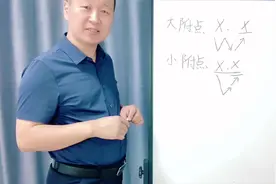 大附点、X· X
小附点、X·X